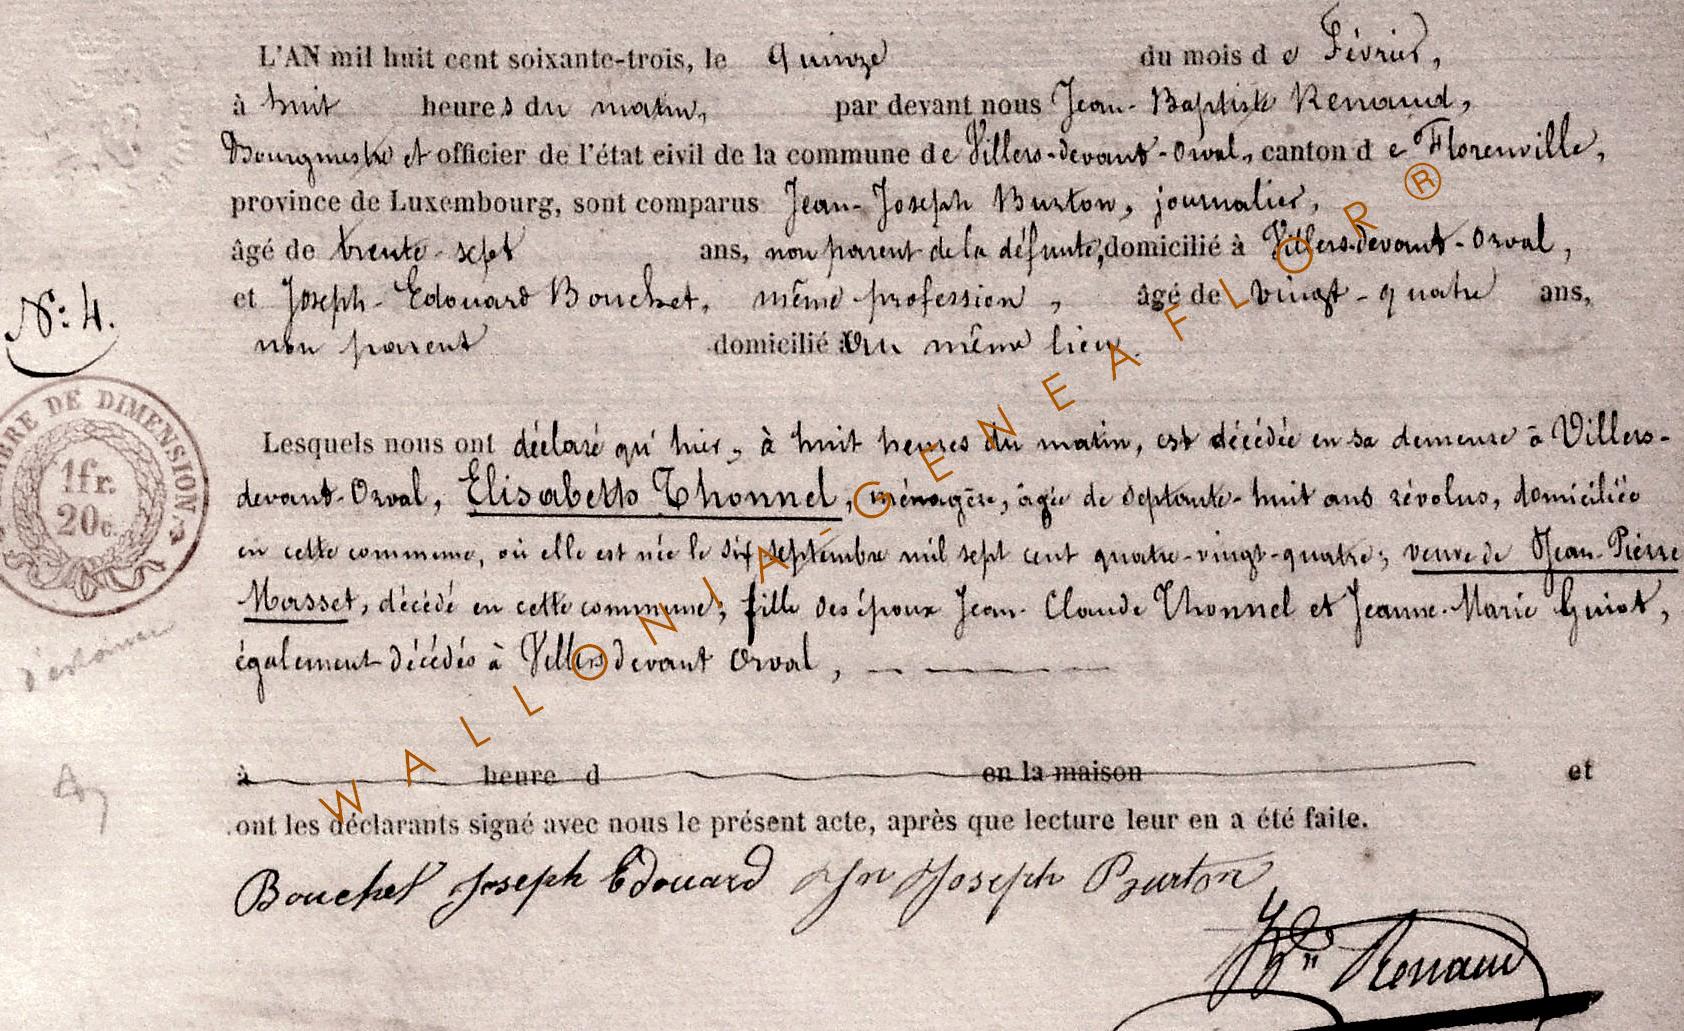 L'AN mil huit cent soixante-trois, le quinze du mois de Février,
à huit heures du matin, par devant nous Jean-Baptiste Renaud,
Bourgmestre et officier de l'état civil de la commune de Villers-devant-Orval, canton de Florenville,
province de Luxembourg, sont comparus Jean-Joseph Burton, journalier,
âgé de trente-sept ans, non parent de la défunte, domicilié à Villers-devant-Orval,
et Joseph-Edouard Bouchet, même profession, âgé de vingt-quatre ans,
N°: 4.
non parent domicilié au même lieu.
TIMBRE DE DIMENSION
1fr.
20c.
Lesquels nous ont déclaré qu'hier, à huit heures du matin, est décédée en sa demeure à Villers-
devant-Orval, Elisabeth Thonnel, ménagère, âgée de septante-huit ans révolus, domiciliée
en cette commune, où elle est née le six septembre mil sept cent quatre-vingt-quatre; veuve de Jean-Pierre
Masset, décédé en cette commune; fille des époux Jean-Claude Thonnel et Jeanne-Marie Guiot,
également décédés à Villers devant Orval,
à heure d en la maison et
ont les déclarants signé avec nous le présent acte, après que lecture leur en a été faite.
Bouchet Joseph Edouard Jn Joseph Burton
Renaud
WALLONIA-GENEAFLOR®